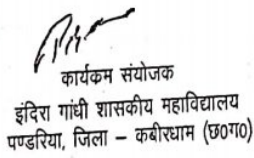 कार्यकम संयोजक
इंदिरा गांधी शासकीय महाविद्यालय
पण्डरिया, जिला – कबीरधाम (छ0ग0)